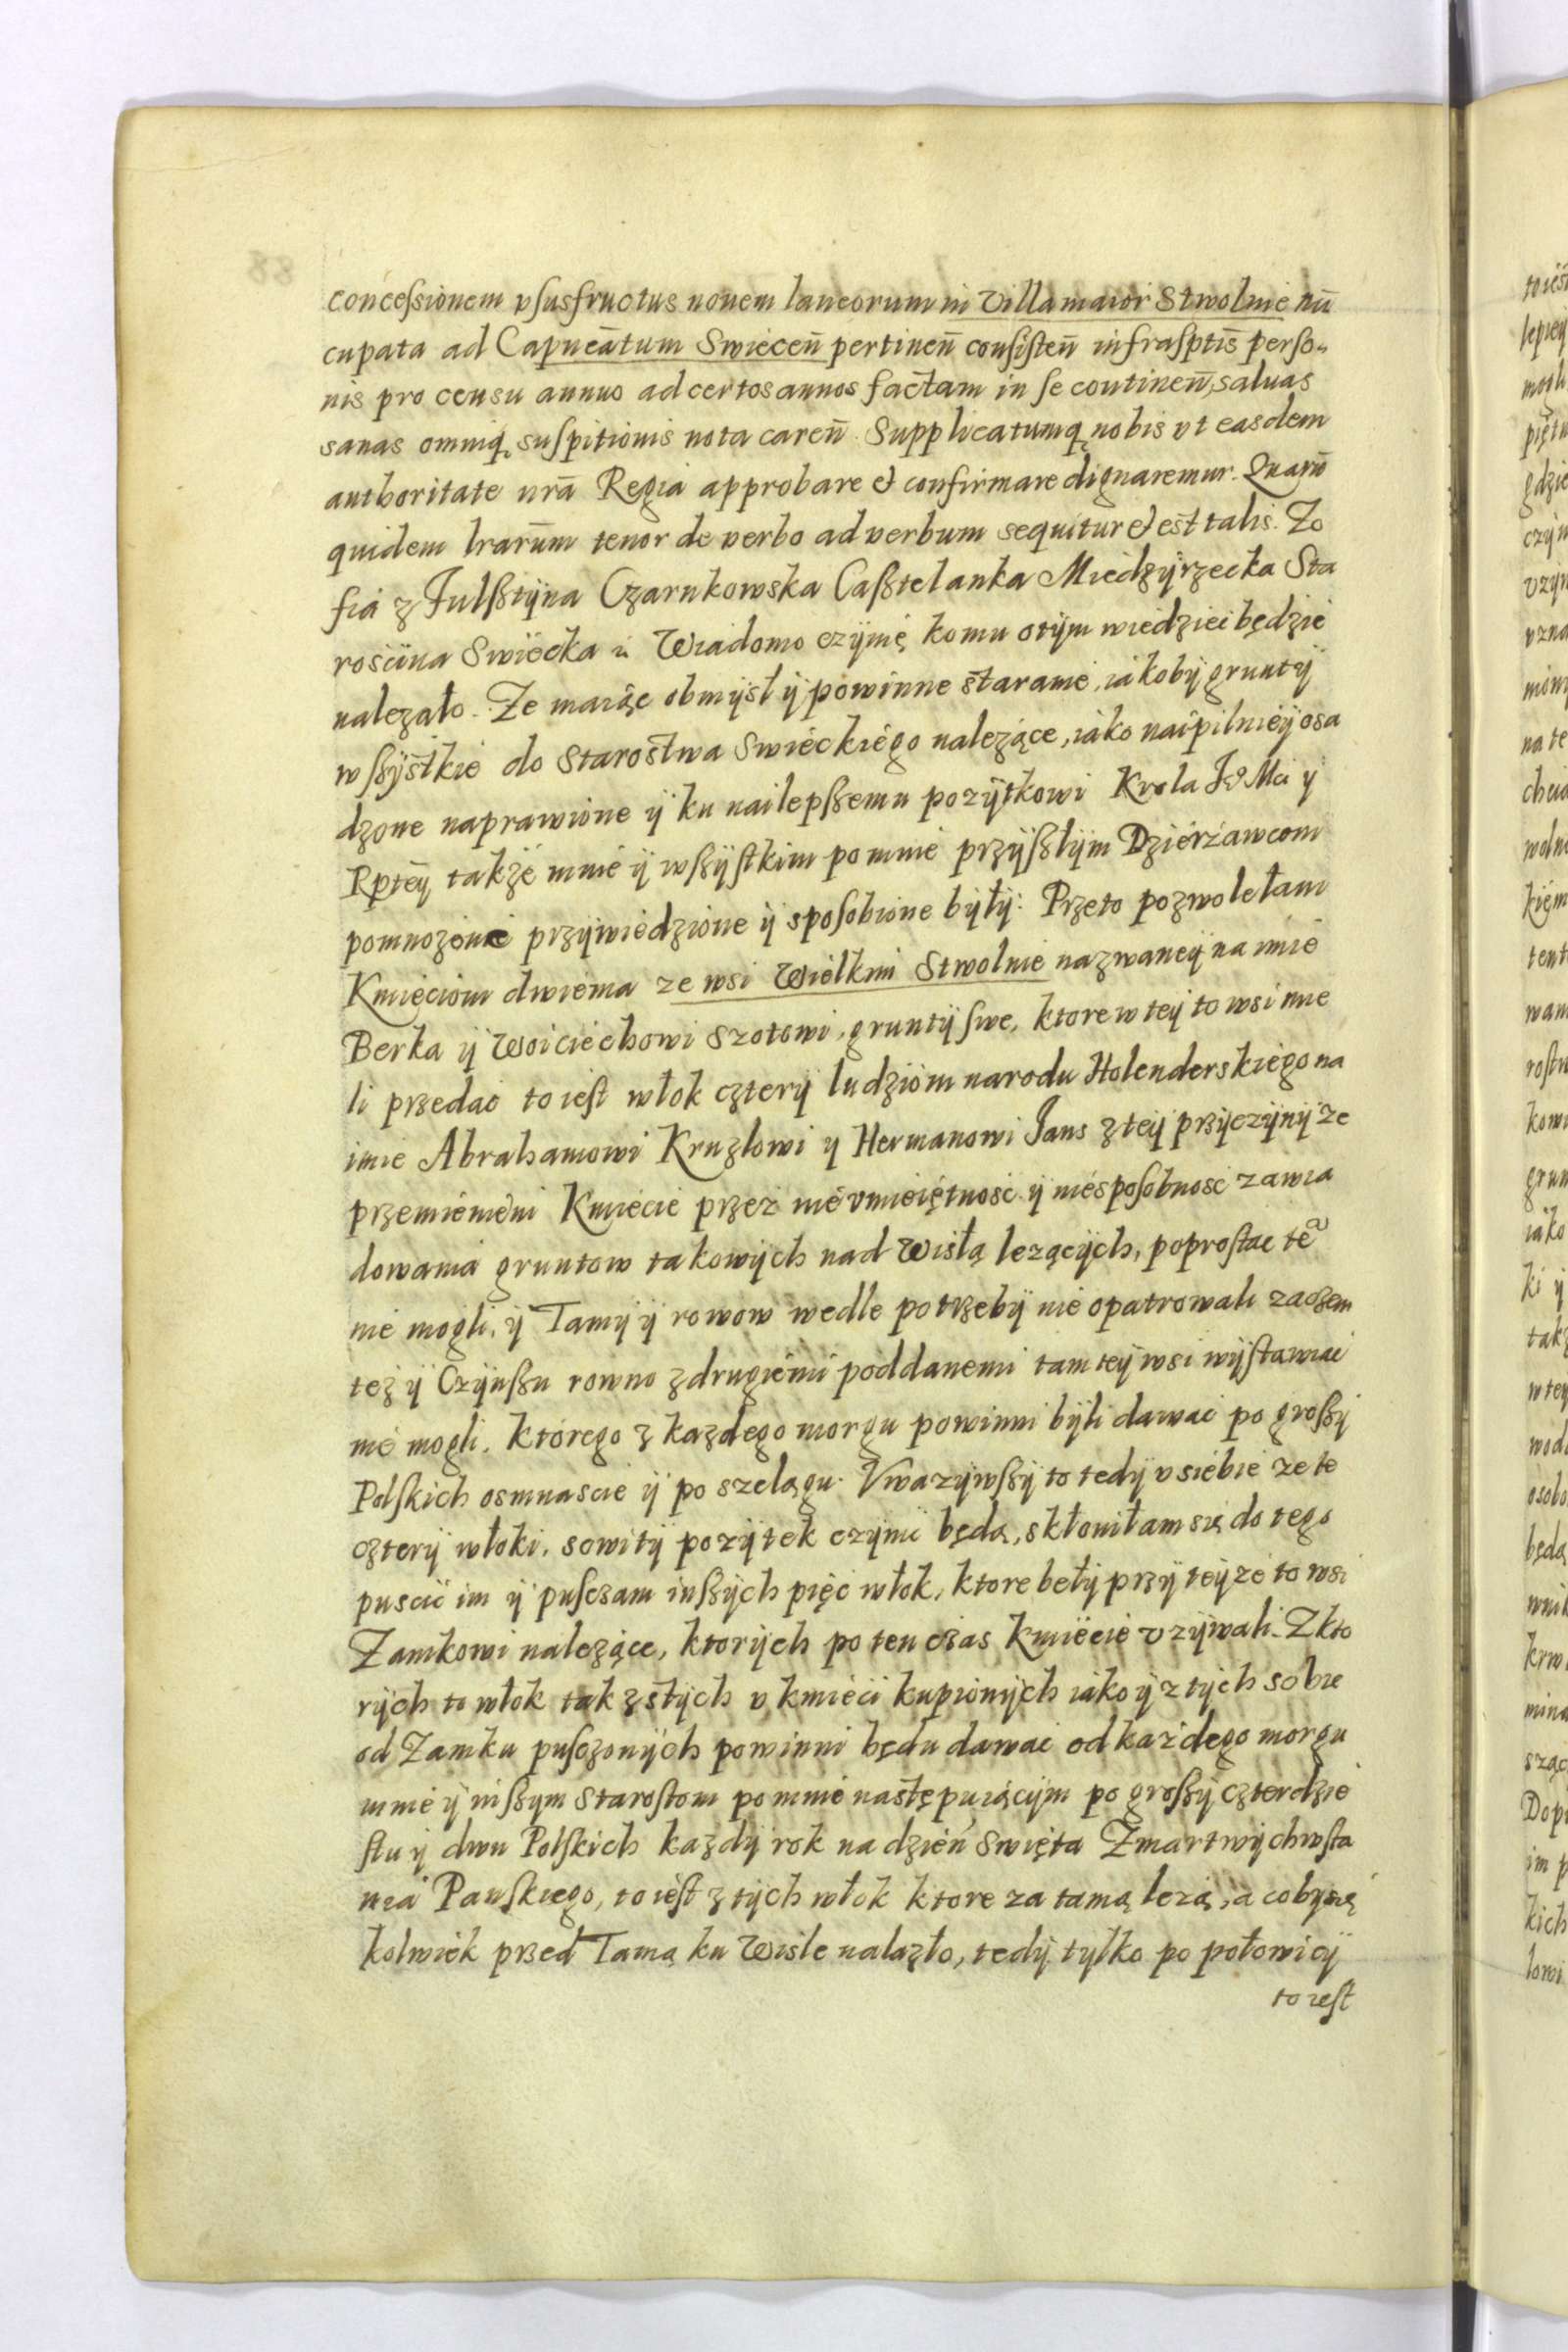 concessionem vsusfructus nouem laneorum in Villa maiori Stwolnie nū
cupata ad Capneātum Swiecen̄ pertinen̄ consisten̄ infrasptis̄ perso-
nis pro censu annuo ad certos annos factam in se continen̄, saluas
sanas omniq̨ suspitionis nota caren̄ Supplicatumq̨ nobis vt easdem
authoritate nrā Regia approbare et confirmare dignaremur. Quarū
quidem lrarūm tenor de verbo ad verbum sequitur et est talis. Zo
fia z Fulsztÿna Czarnkowska Casztelanka Miedzÿrzecka Sta
rosciina Swiecka Wiadomo czÿnię komu otÿm wiedziec będzie
nalezało. Ze maiąc obmÿsł ÿ powinne staranie, iakobÿ gruntÿ
wszÿstkie do Starostwa Swieckiego nalezące, iako naipilnieÿ osa
dzone naprawione ÿ ku nailepszemu pozÿtkowi Krola Jº Mci ÿ
Rpteÿ takze mnie ÿ wszÿstkim po mnie przÿszłÿm Dzierzawcom
pomnozenie przÿwiedzione ÿ sposobione bÿłÿ: Przeto pozwolełam
Kmieciom dwiema ze wsi Wielkmi Stwolnie nazwaneÿ na imie
Berka ÿ Woiciechowi Szotowi, gruntÿ swe, ktore w teÿ to wsi mie
li przedac to iest włok czterÿ ludziom narodu Holenderskiego na
imie Abrahamowi Kruzlowi y Hermanowi Jans z teÿ przÿczÿnÿ ze
przemienieni Kmiecie przez nie vmieiętnosc ÿ niesposobnosc zawia
dowania gruntow takowÿch nad Wisłą lezącÿch, poprostac te͂
nie mogli, ÿ Tamÿ ÿ rowow wedle potrzebÿ nie opatrowali zaczem
tez ÿ Czÿnszu rowno z drugiemi poddanemi tam teÿ wsi wÿstawiac
nie mogli, ktorego z kazdego morgu powinni bÿli dawac po groszÿ
Polskich osmnascie ÿ po szelągu. Vwazÿwszÿ to tedÿ v siebie ze te
czterÿ włoki, sowitÿ pozÿtek czÿnic będą, skłoniłam się do tego
puscic im ÿ pusczam inszÿch pięc włok, ktore bełÿ przÿ teÿze to wsi
Zamkowi nalezące, ktorÿch po ten czas kmiecie vzÿwali. Z kto
rÿch to włok tak z stÿch v kmieci kupionÿch iako ÿ z tÿch sobie
od Zamku pusczonÿch powinni będą dawac od kazdego morgu
mnie ÿ inszym Starostom po mnie następuiącÿm po groszÿ czterdzie
stu ÿ dwu Polskich kazdÿ rok na dzien swięta Zmartwÿchwsta
nia Panskiego, to iest z tÿch włok ktore za tamą lezą, a cobÿ się
kolwiek przed Tamą ku Wisle nalazło, tedÿ tylko po połowicÿ
to iest